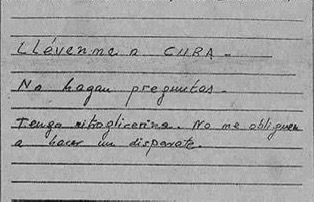 Llévenme a CUBA -
No hagan preguntas.
Tengo nitroglicerina. No me obliguen
a hacer un disparate.